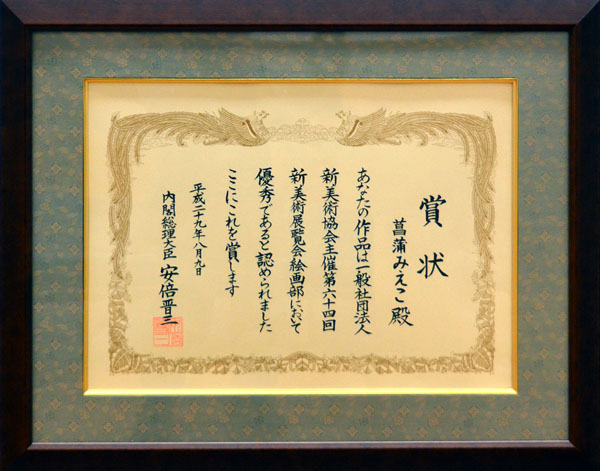 賞状
菖蒲みえこ殿
あなたの作品は一般社団法人
新美術協会主催第六十四回
新美術展覧会絵画部において
優秀であると認められました
ここにこれを賞します
平成二十九年八月九日
内閣総理大臣 安倍晋三